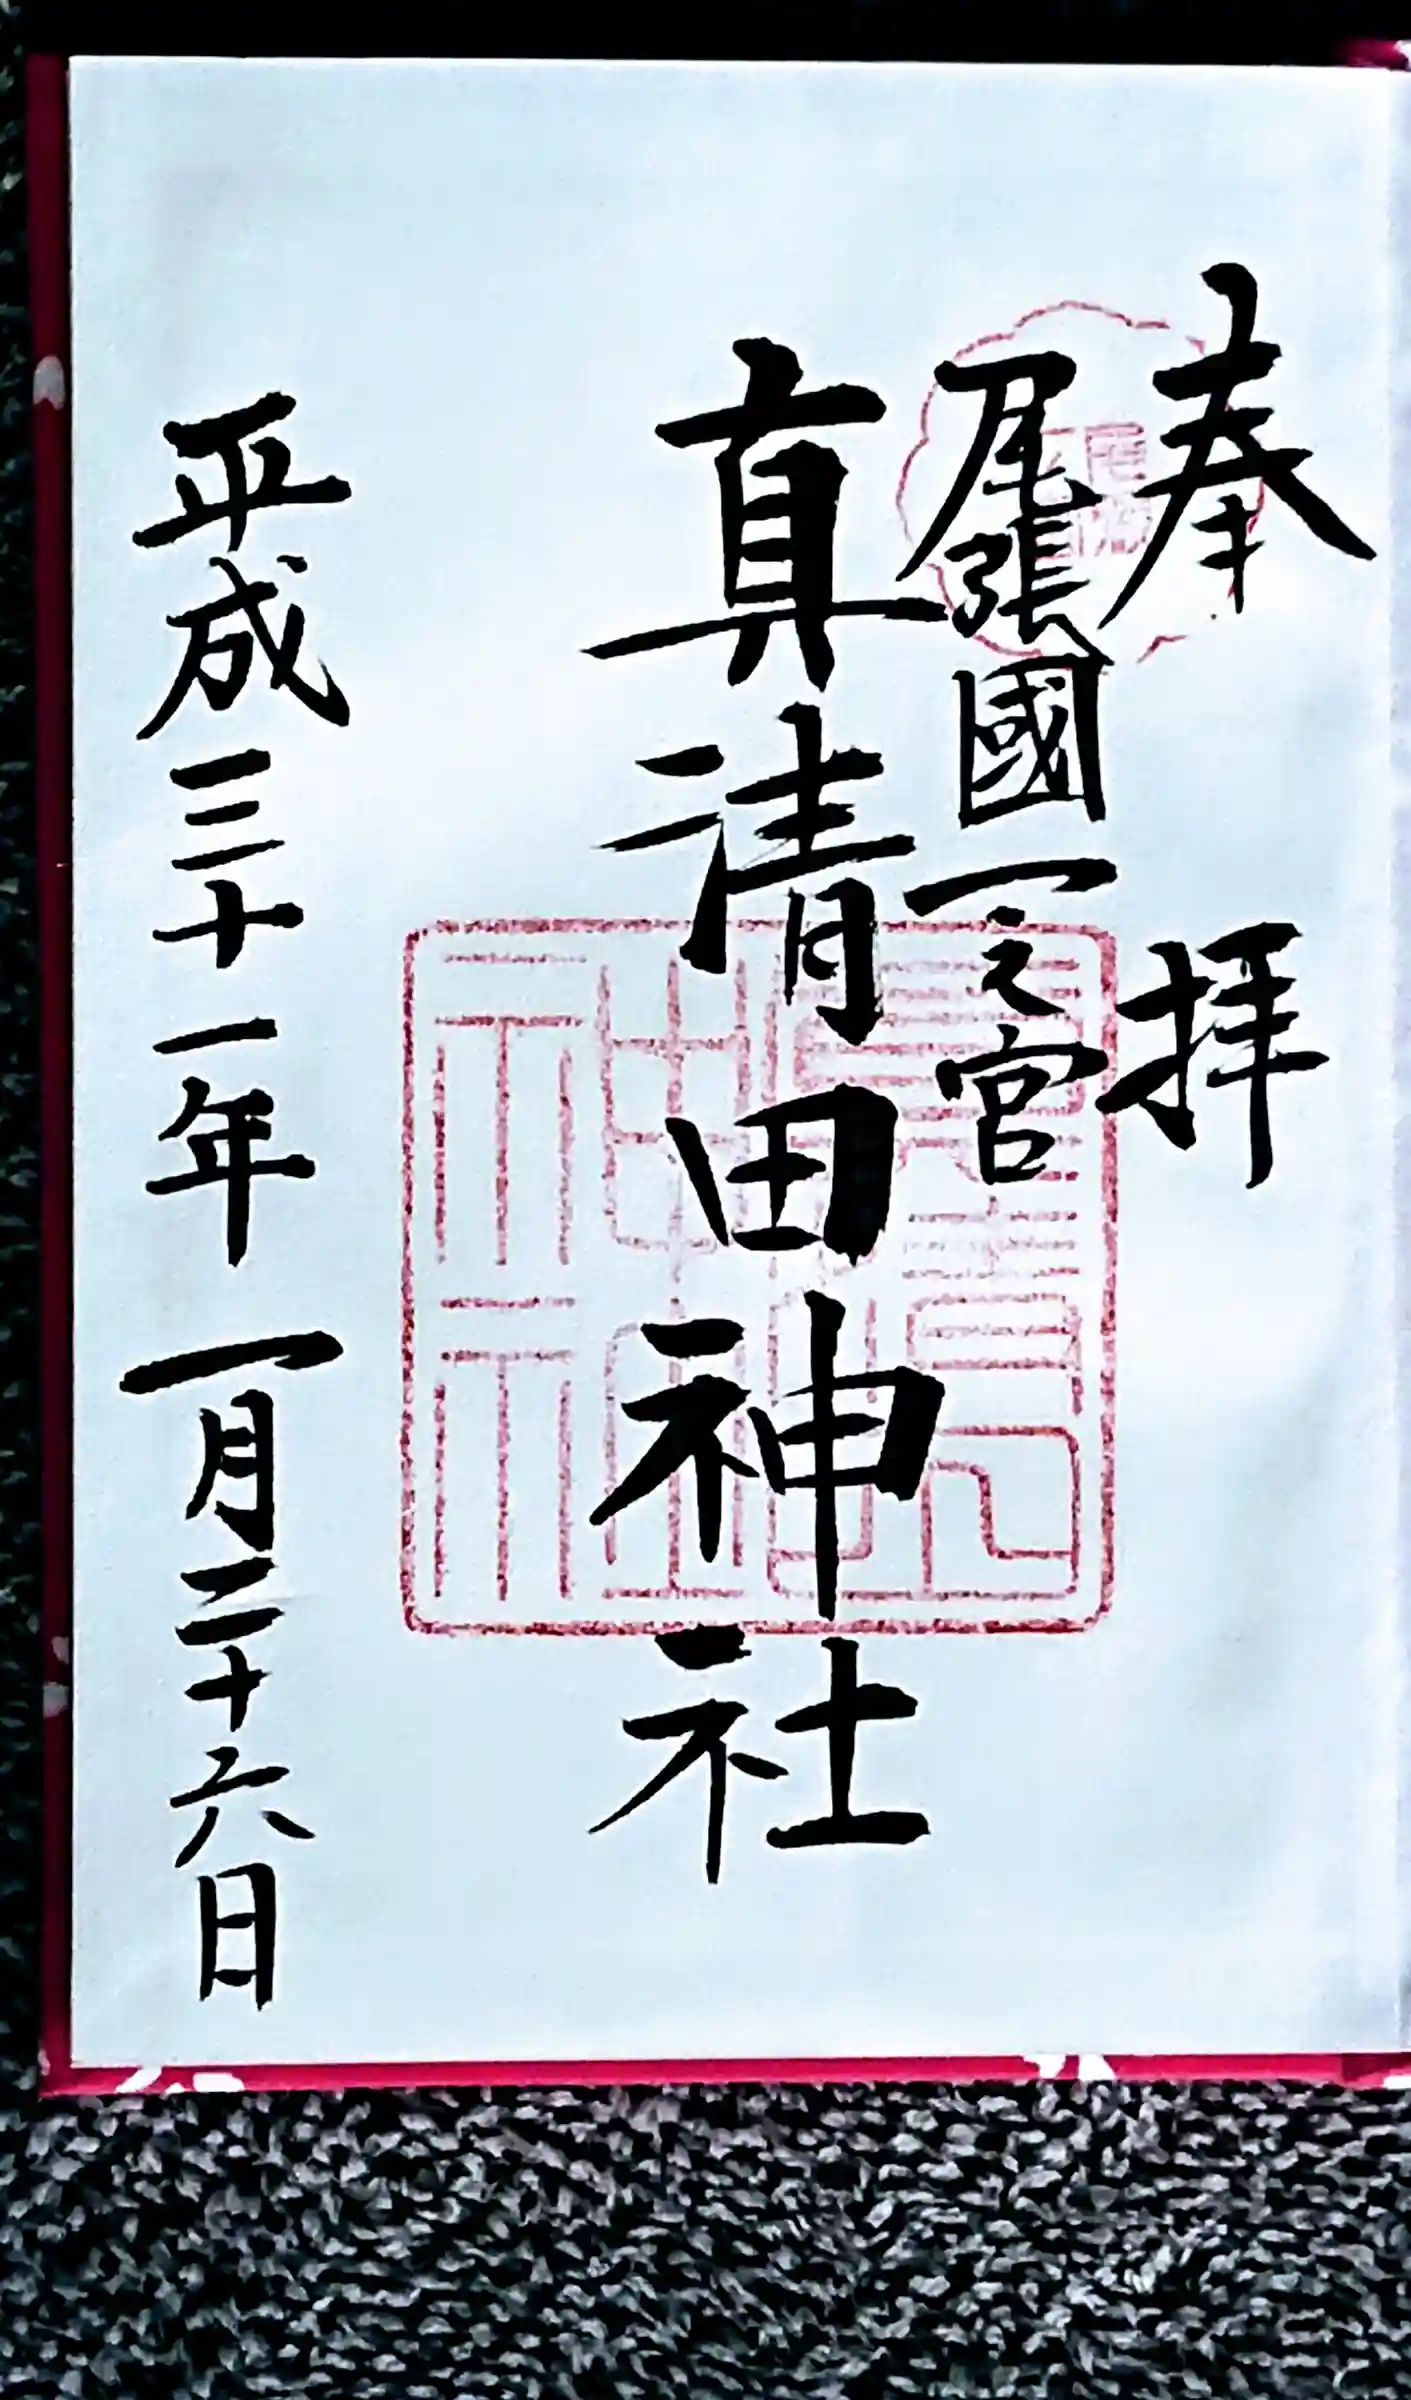 奉拝
尾張國一之宮
真清田神社
平成三十一年一月二十六日